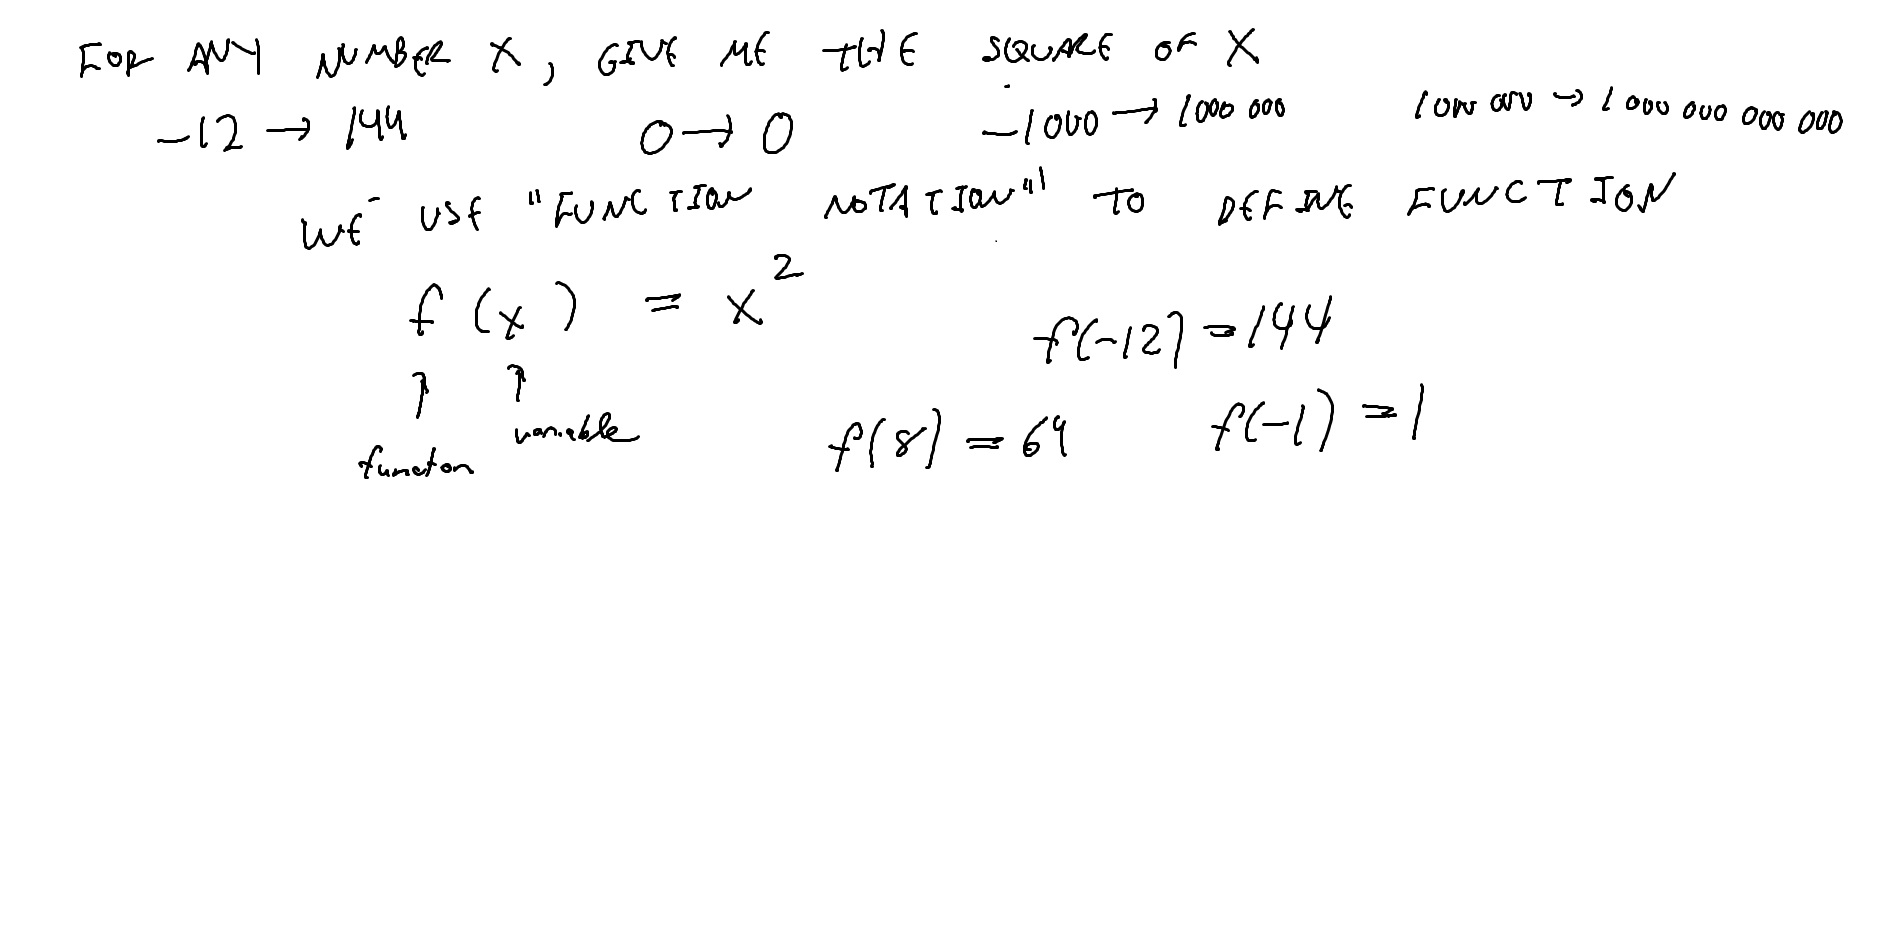 FOR ANY NUMBER X, GIVE ME THE SQUARE OF X
-12 → 144 0 → 0 -1000 → 1000 000 1000 000 → 1 000 000 000 000
WE USE "FUNCTION NOTATION" TO DEFINE FUNCTION
f(x) = x²
f(-12) = 144
↑ ↑
f(8) = 64 f(-1) = 1
variable
functon